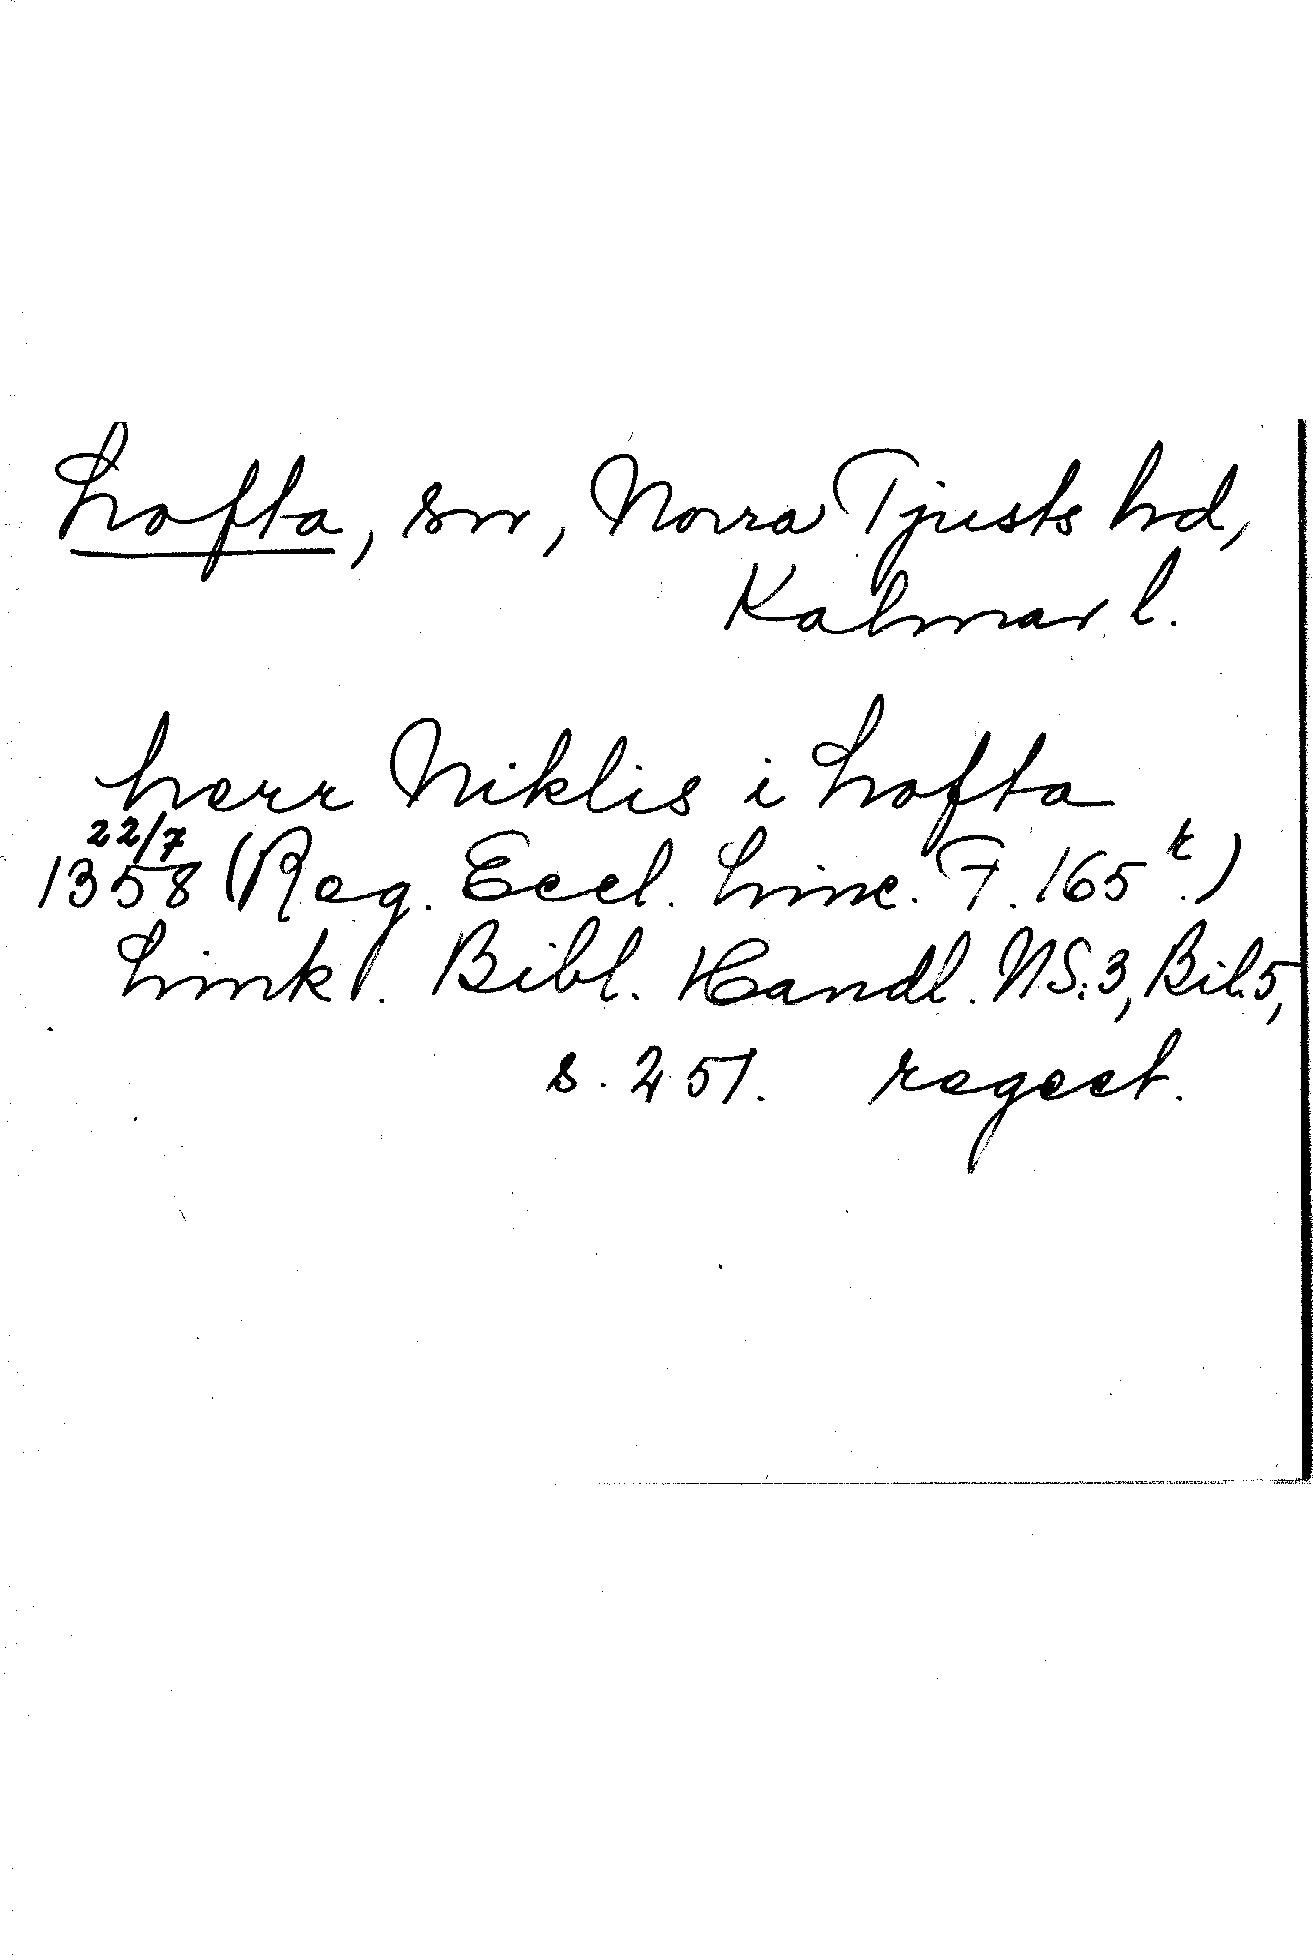 Lofta, sn, Norra Tjusts hd,
Kalmar l.
herr Niklis i Lofta
22/7
1358 (Reg. Eccl. Linc. F. 165 r.)
Link. Bibl. Handl. NS. 3, Bil. 5,
s. 251. regest.